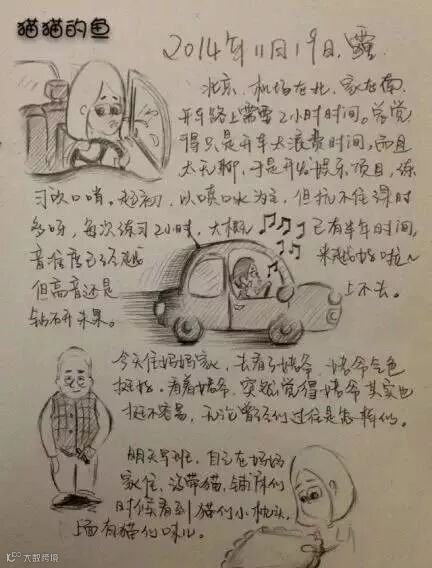 猫猫的鱼
2014年11月19日.
北京,机场在北,家在南.
开车路上需要2小时时间。总觉
得只是开车太浪费时间,而且
太无聊,于是开发娱乐项目,练
习吹口哨。起初,以喷口水为主,但抗不住课时
多呀,每次练习2小时,大概已有半年时间,
音准度已经越来越好啦~
但高音还是上不去。
今天住妈妈家,去看了姥爷,姥爷气色
挺好。看着姥爷,突然觉得姥爷其实也
挺不容易,无论曾经们过往是怎样的。
明天早班,自己在妈妈
家住,没带猫,铺床的
时候看到猫们小枕头,
上面有猫们味儿。
大数跨境